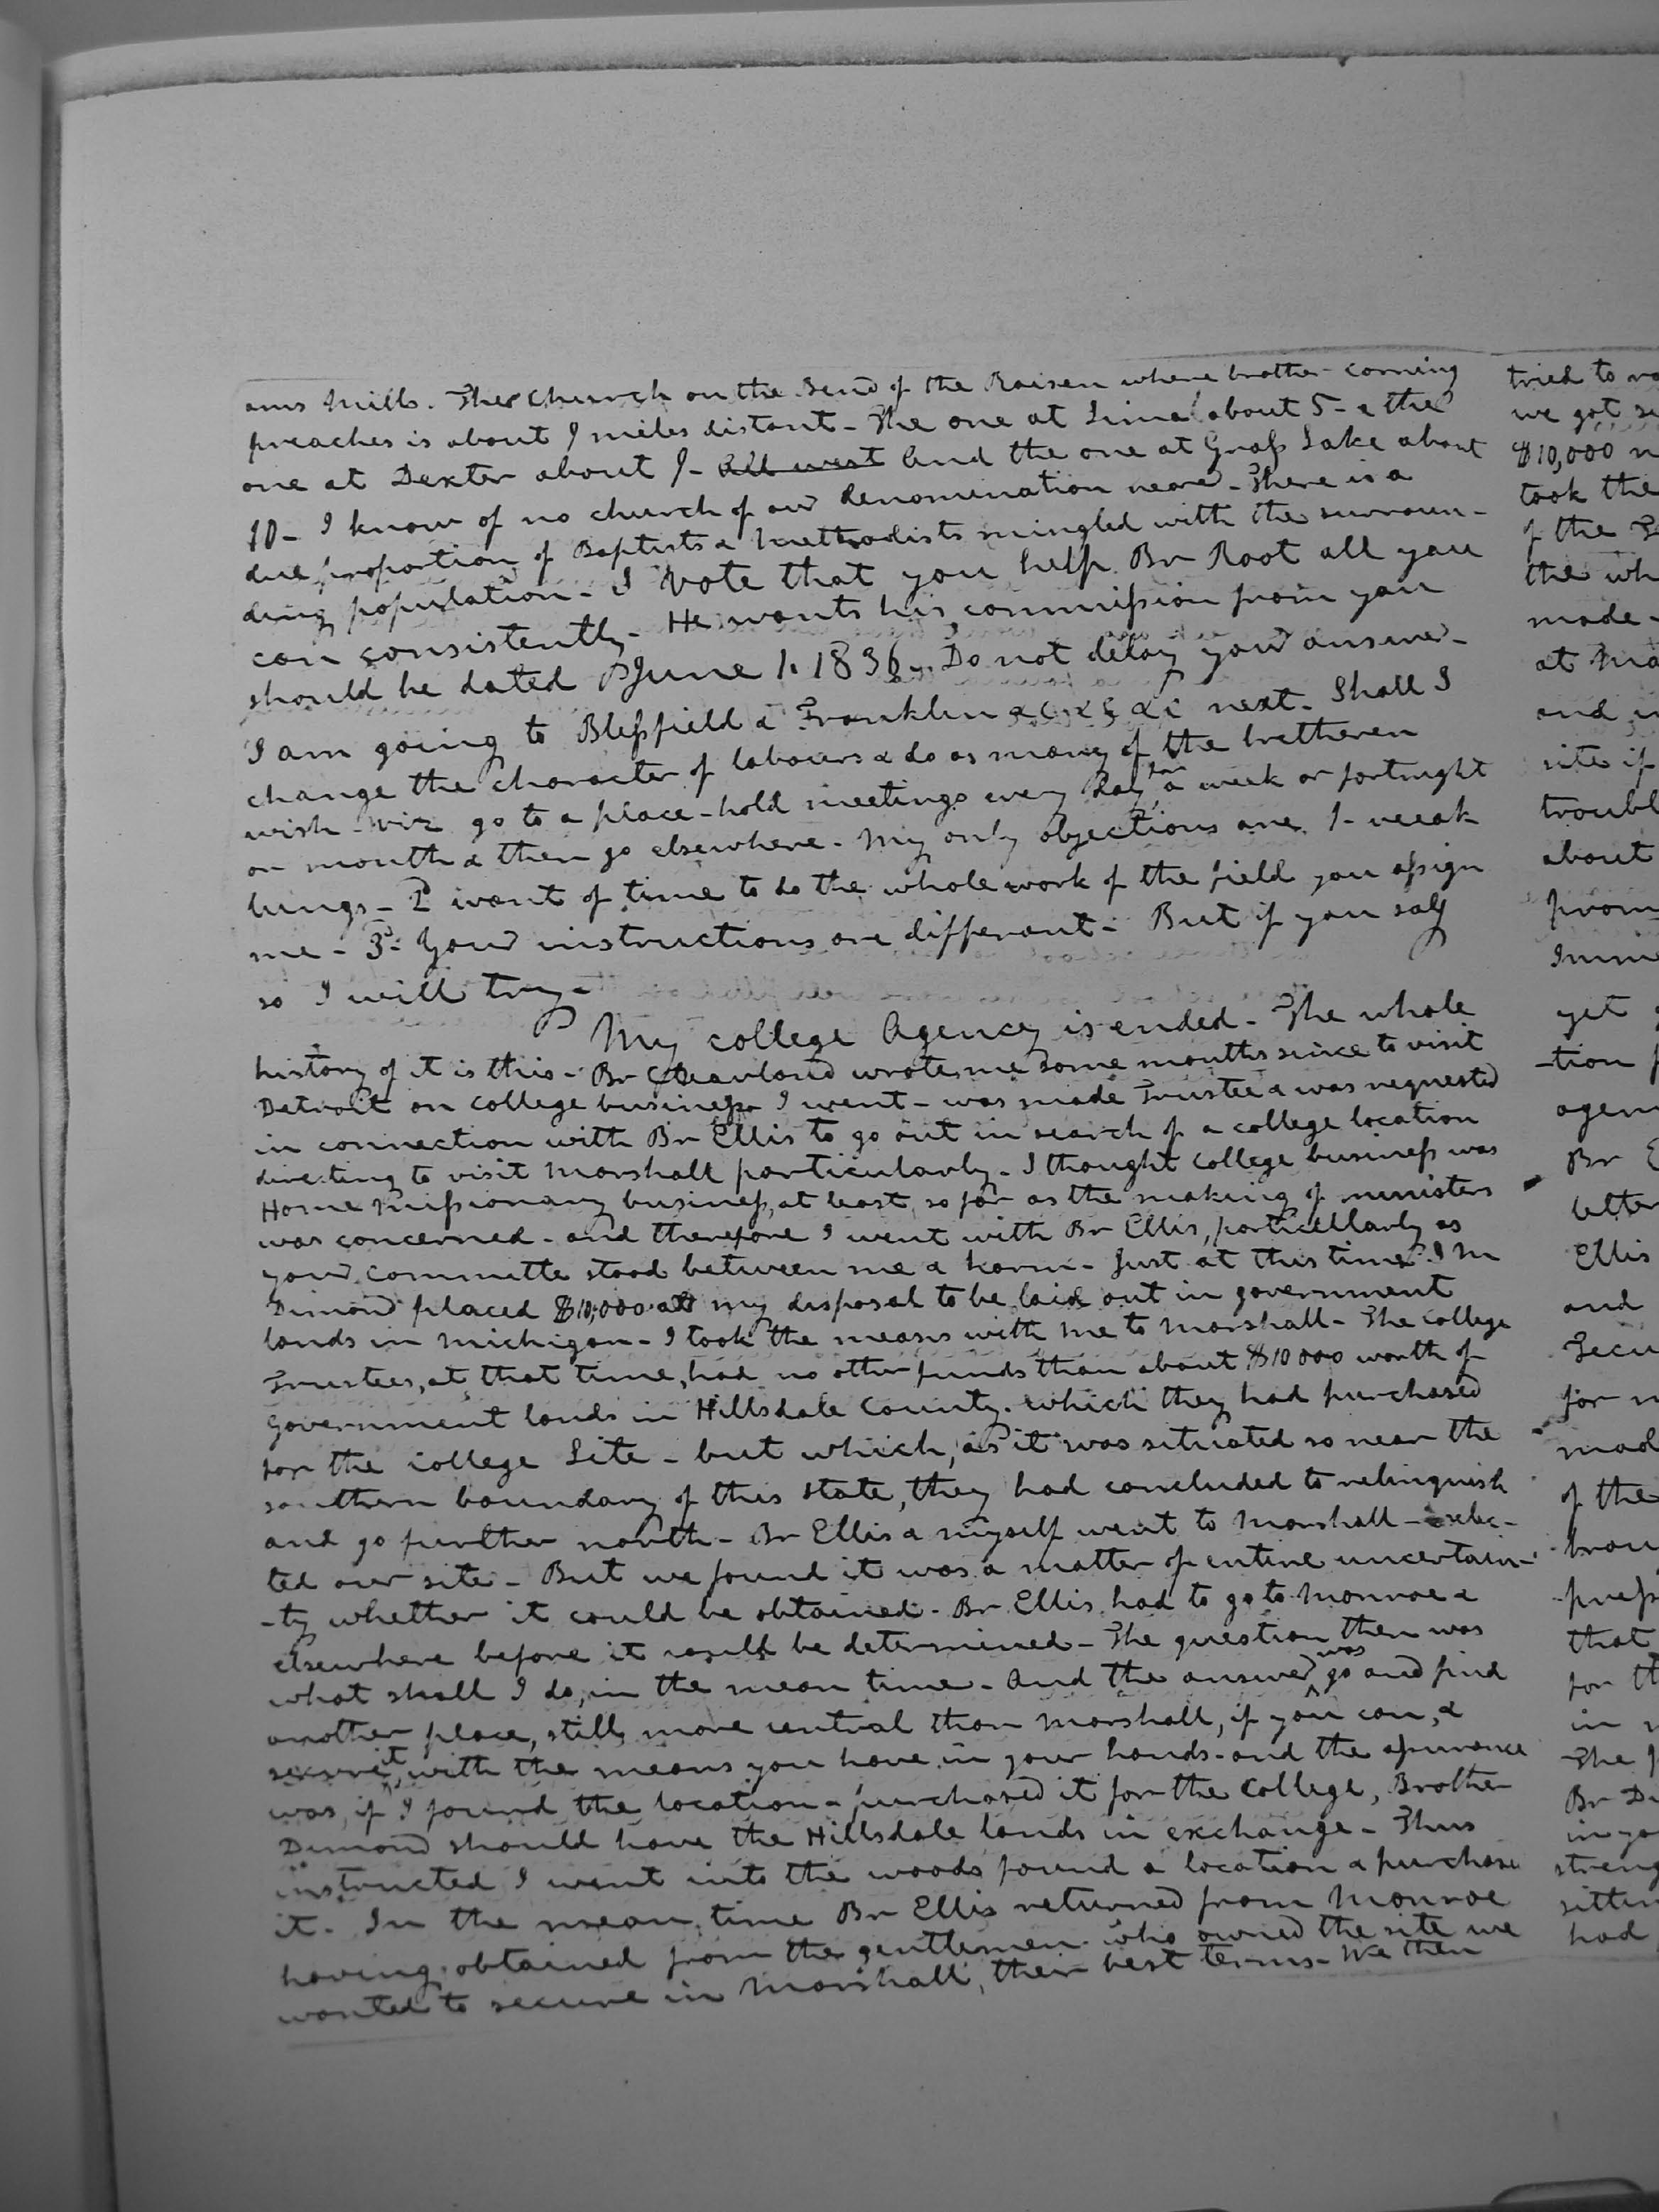 ams Mills. The Church on the bend of the Raisen where brother corning
preaches is about 9 miles distant - The one at Lima about 5 - & the
one at Dexter about 9 - all west And the one at Grass Lake about
10 - I know of no church of our denomination near - There is a
due proportion of Baptists & Methodists mingled with the surroun-
ding population - I vote that you help Br Root all you
can consistently - He wants his commission from you
should be dated June 1. 1836 - Do not delay your answer -
I am going to Blessfield & Franklin &c &c &c next - Shall I
change the character of labours & do as many of the bretheren
wish - viz go to a place - hold meetings every day for a week or fortnight
or month & then go elsewhere - My only objections are 1 - weak
lungs - 2 want of time to do the whole work of the field you assign
me - 3d - Your instructions are different - But if you say
so I will try -
My college Agency is ended - The whole
history of it is this - Br Cleaveland wrote me some months since to visit
Detroit on college business I went - was made Trustee & was requested
in connection with Br Ellis to go out in search of a college location
directing to visit Marshall particularly - I thought college business was
Home Missionary business, at least, so far as the making of ministers
was concerned - and therefore I went with Br Ellis, particularly as
your committe stood between me & harm - Just at this time J M
Dimond placed $10,000 at my disposal to be laid out in government
lands in Michigan - I took the means with me to Marshall - The college
Trustees, at that time, had no other funds than about $10 000 worth of
government lands in Hillsdale County - which they had purchased
for the college Site - but which, as it was situated so near the
southern boundary of this state, they had concluded to relinquish
and go further north - Br Ellis & myself went to Marshall - selec-
ted our site - But we found it was a matter of entire uncertain-
-ty whether it could be obtained - Br Ellis had to go to Monroe &
elsewhere before it could be determined - The question then was
what shall I do, in the mean time - And the answer was go and find
another place, still more central than Marshall, if you can, &
secure it, with the means you have in your hands - and the assurance
was, if I found the location & purchased it for the College, Brother
Dimond should have the Hillsdale lands in exchange - Thus
instructed I went into the woods found a location & purchase
it - In the mean time Br Ellis returned from Monroe
having obtained from the gentlemen who owned the site we
wanted to secure in Marshall, their best terms - We then
tried to
we got
$10,000
took the
of the
the wh
made -
at Ma
and
site if
troubl
about
from
Imme
yet
-tion
agen
Br
letter
Ellis
and
Secu
for
mad
of the
brou
press
that
for th
in
The
Br Di
in yo
streng
sittin
had